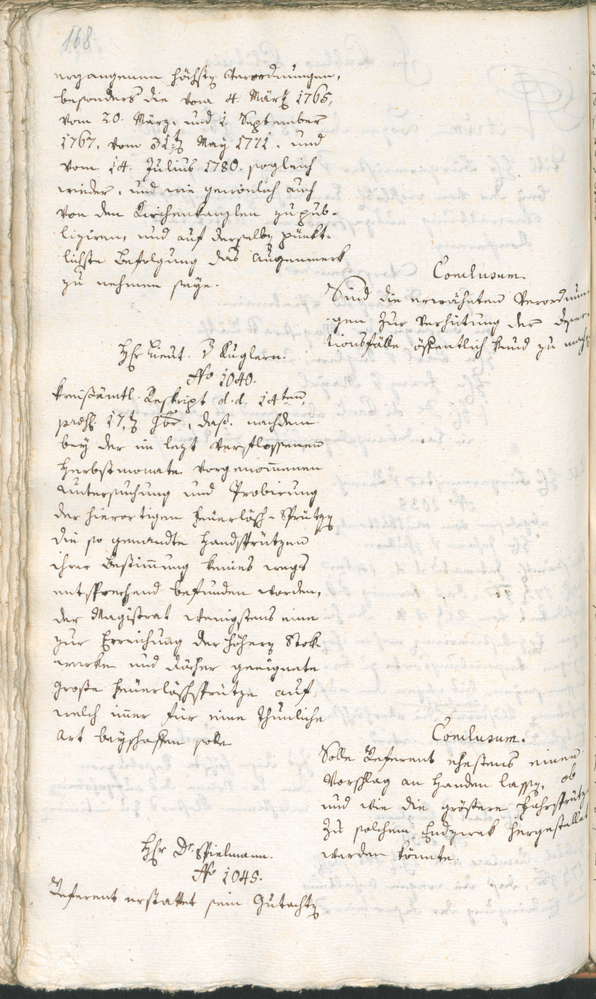 168
ergangenen höchsten Verordnungen,
besonders die vom 4 März 1765,
vom 20 März, und 1 September
1767, vom 31ten May 1771, und
vom 14. Julius 1780. sogleich
wieder, und wie gewönlich auch
von den Kirchenkanzlen zu pub-
liziren, und auf derselben pünkt-
lichste Befolgung das Augenmerk
zu nehmen seye.
Conclusum.
Sind die erwähnten Verordnun-
gen zur Verhütung der
tionsfälle öffentlich kund zu machen
Hr Lieut. v Kuglern.
No 1040.
Kreißämtl. Reskript d. d. 14ten,
praes. 17. 9br, daß, nachdem
bey der im lezt verflossenen
Herbstmonate vorgenommenen
Untersuchung und Probirung
der hierortigen Feuerlösch-Sprützen
die so genandte Handsprützen
ihrer Bestimmung keines wegs
entsprechend befunden worden,
der Magistrat wenigstens eine
zur Erreichung der höhern Stok-
werke und Dächer geeignete
große Feuerlöschsprütze auf
welch immer für eine thunliche
Art beyschaffen solle
Conclusum.
Solle Referent ehestens einen
Vorschlag an Handen lassen, ob
und wie die größere Fahrsprütze
zu solchem Endzwek hergestellet
werden könnte.
Hr Dr. Spielmann.
No 1045.
Referent erstattet sein Gutachten